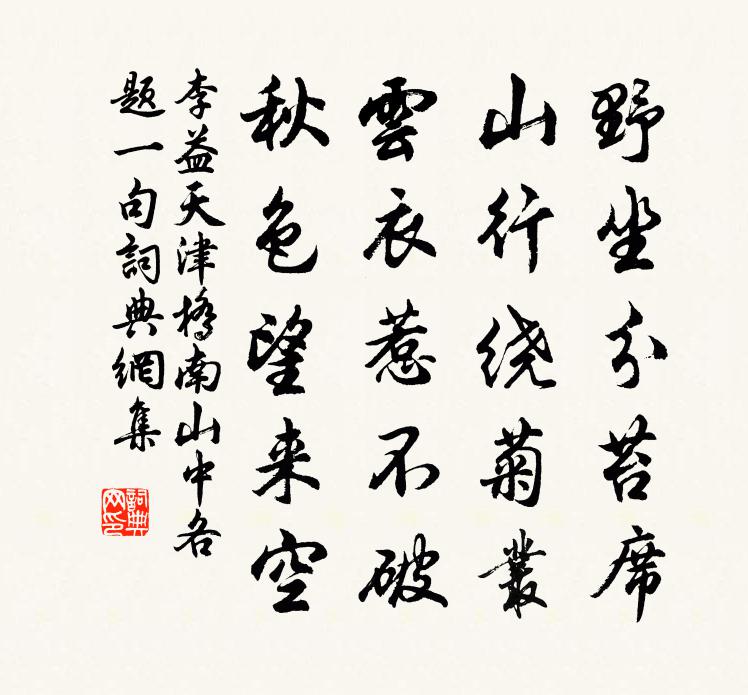 野坐分苔席
山行绕菊叢
雲衣惹不破
秋色望来空
李益天津橋南山中各
题一句詞典網集
詞典网印